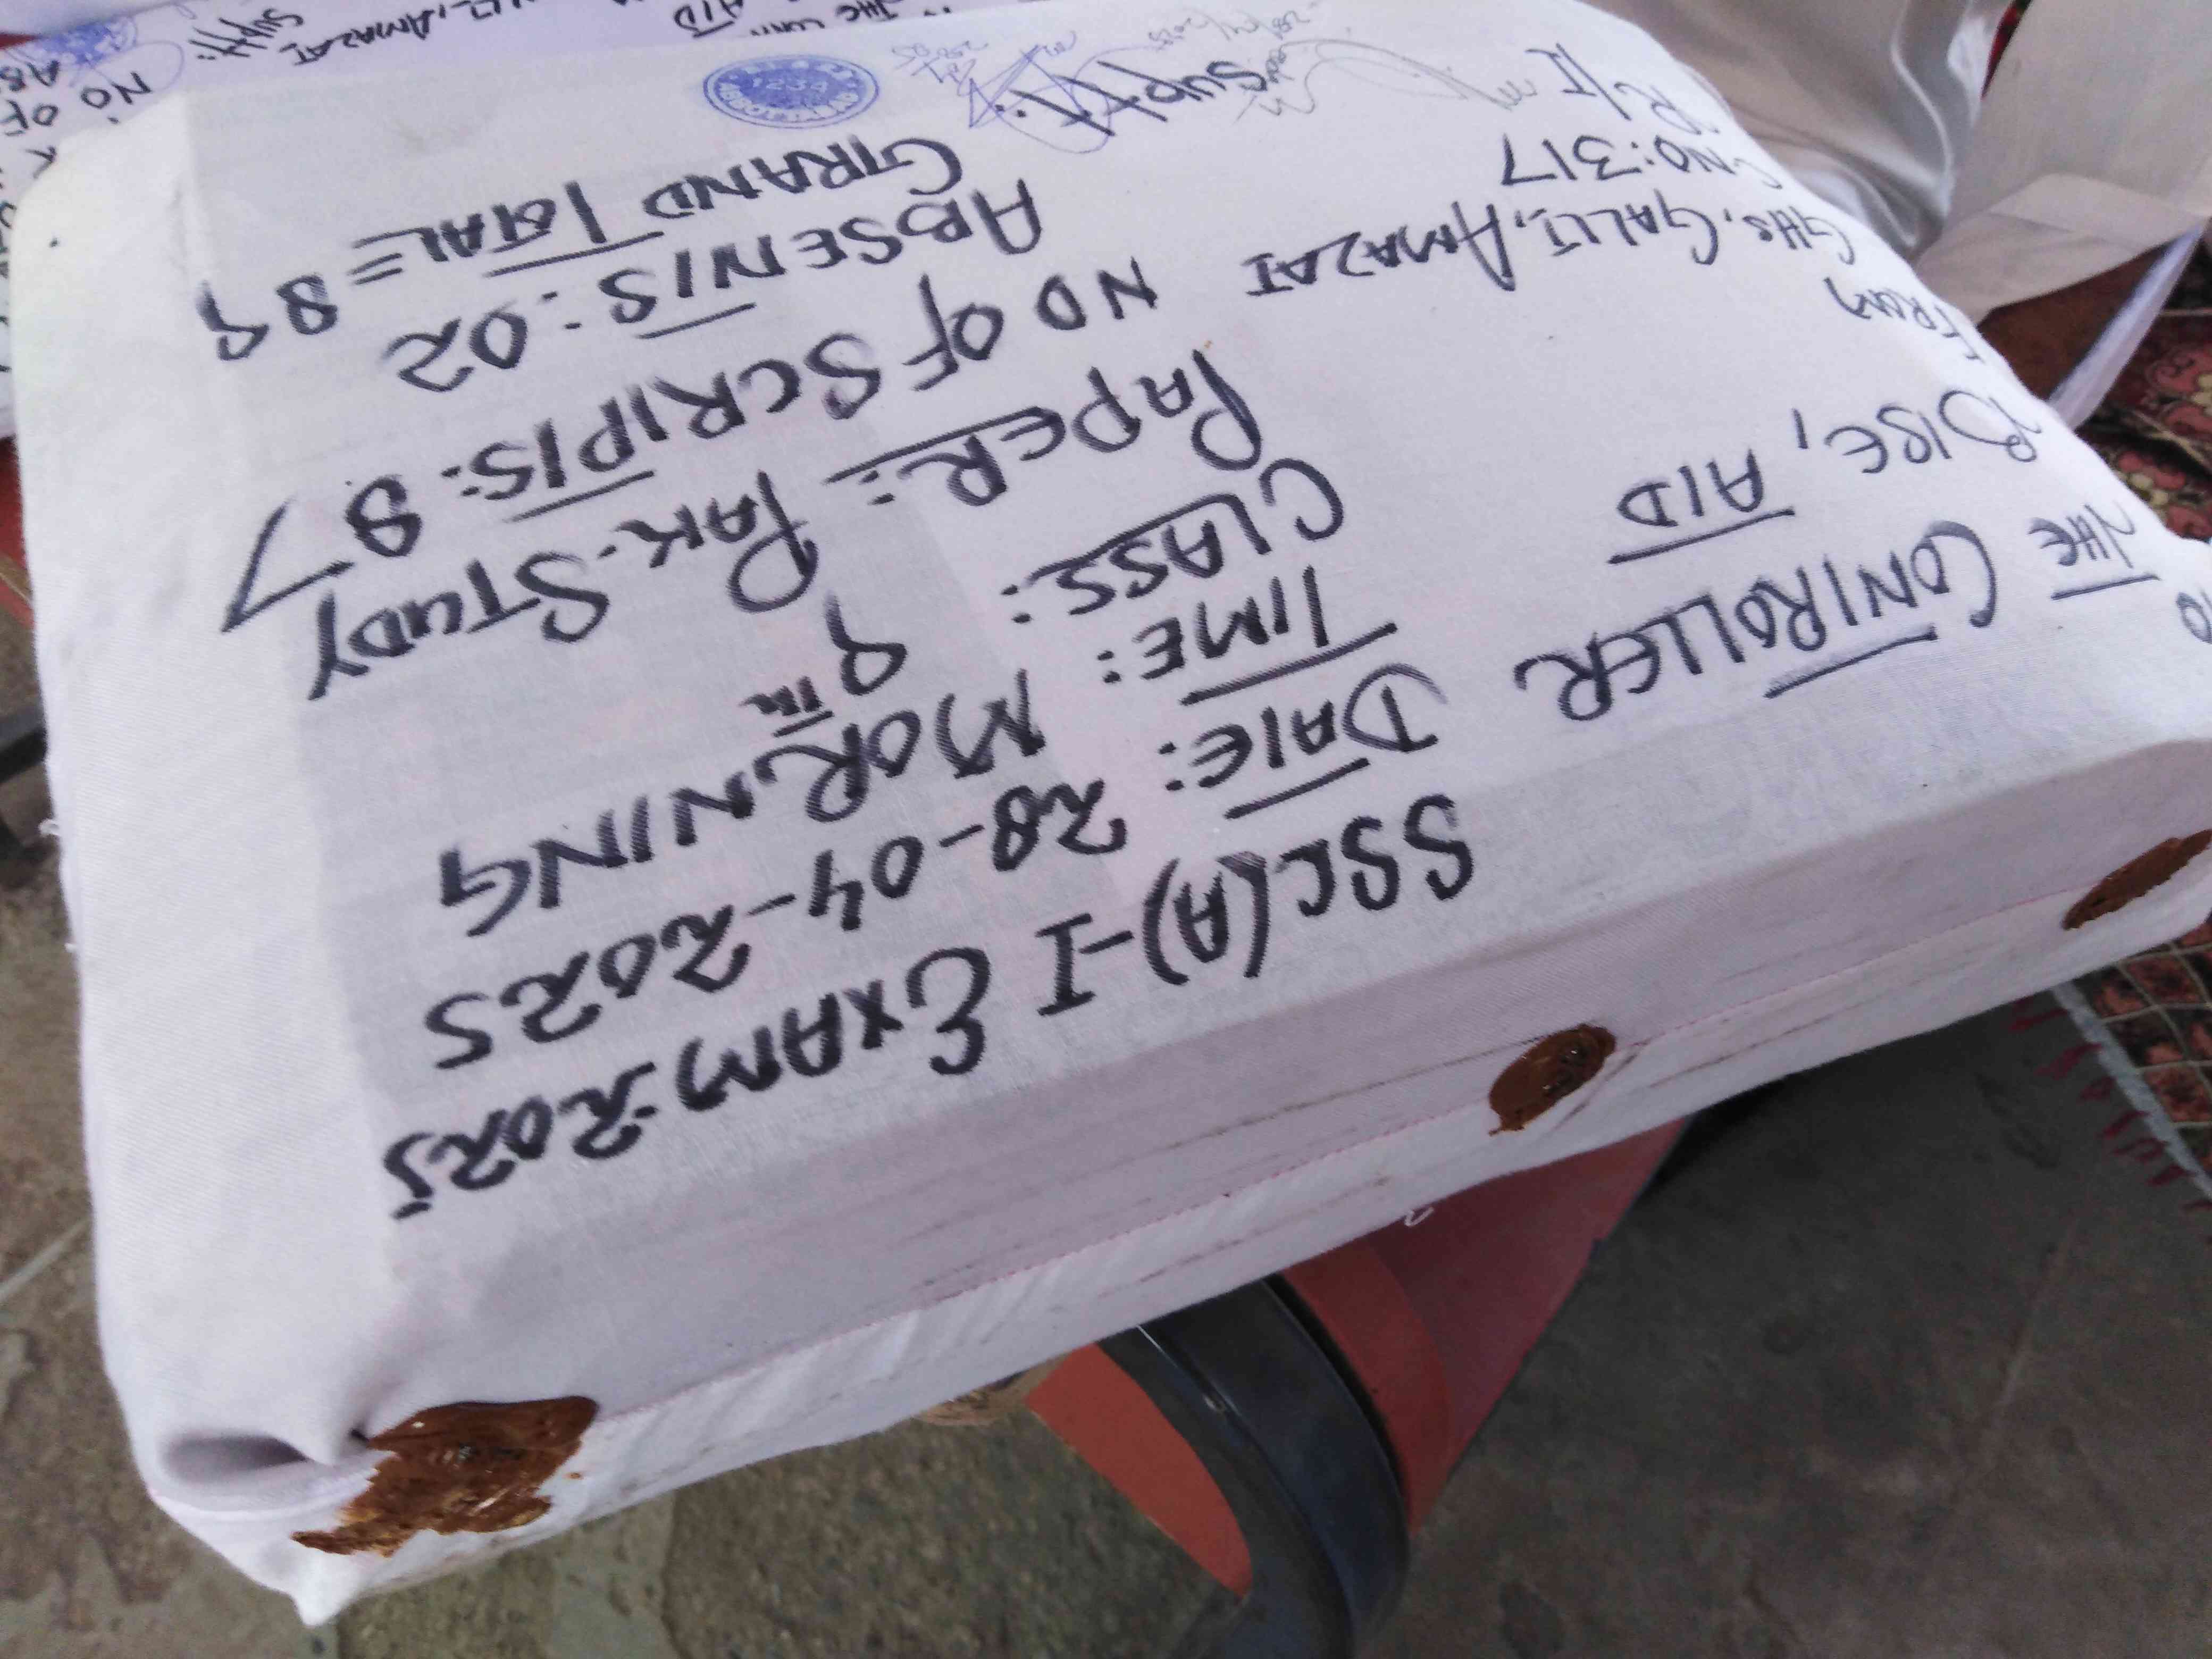 SSC(A)-I EXAM-2025
DATE: 28-04-2025
TIME: MORNING
CLASS: 9th
PAPER: PAK-STUDY
NO OF SCRIPTS: 87
ABSENTS: 02
GRAND TOTAL = 89
Suptt:
TO
THE CONTROLLER
BISE, ATD
FROM
GHS, GALLI, AMAZAI
C.NO: 317
R/I
THE
ATD
AMAZAI
Suptt:
NO OF